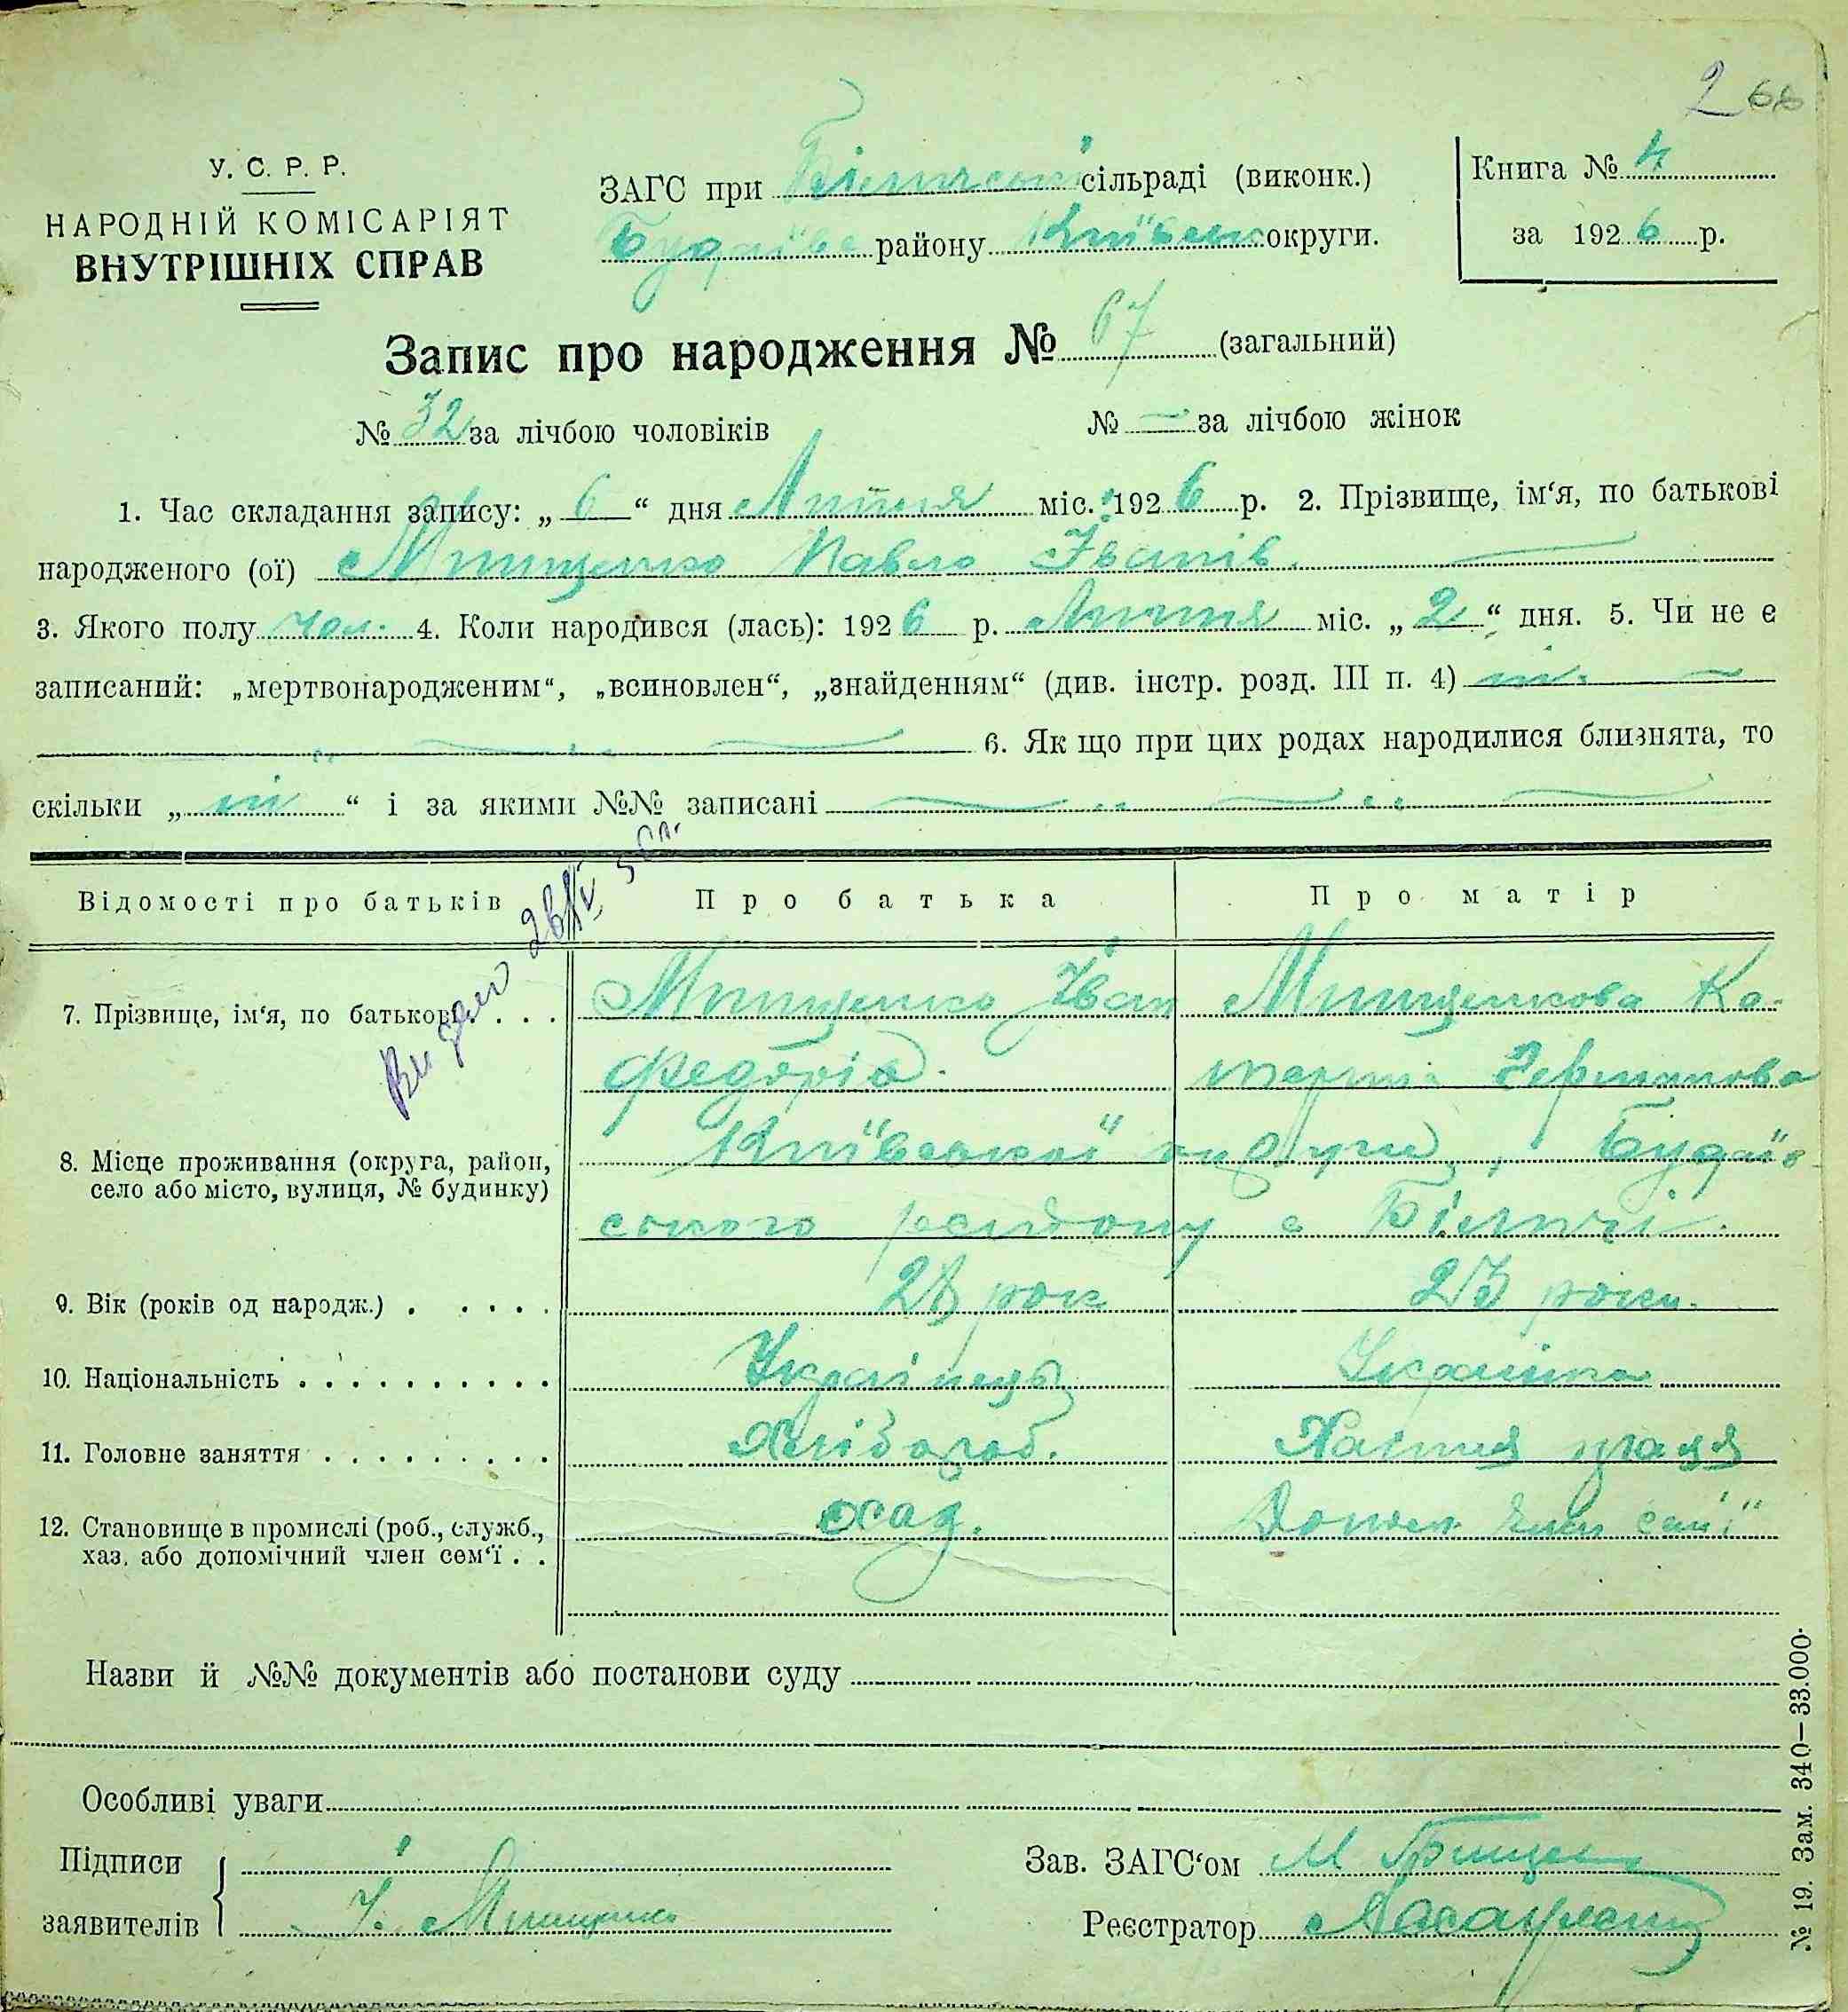 2 66
У. С. Р. Р.
НАРОДНІЙ КОМІСАРІЯТ
ВНУТРІШНІХ СПРАВ
ЗАГС при сільраді (виконк.)
району Київськ округи.
Книга № 4
за 1926 р.
Запис про народження № 67 (загальний)
№ 32 за лічбою чоловіків
№ — за лічбою жінок
1. Час складання запису: „6“ дня Липня міс. 1926 р. 2. Прізвище, ім‘я, по батькові
народженого (ої) Мищенко Павло Іванів.
3. Якого полу чол. 4. Коли народився (лась): 1926 р. Липня міс. „2“ дня. 5. Чи не є
записаний: „мертвонародженим“, „всиновлен“, „знайденням“ (див. інстр. розд. III п. 4) ні.
6. Як що при цих родах народилися близнята, то
скільки „ні“ і за якими №№ записані
Відомості про батьків
Про батька
Про матір
7. Прізвище, ім‘я, по батькові . . .
Мищенко Іван
Федорів.
Мищенкова Ка-
8. Місце проживання (округа, район,
село або місто, вулиця, № будинку)
Київської округи, Будаїв-
ського району с Біличі.
9. Вік (років од народж.) . . . . .
рок
23 роки.
10. Національність . . . . . . . . . .
Українець
Українка
11. Головне заняття . . . . . . . . .
Хлібороб.
Хатня праця
12. Становище в промислі (роб., служб.,
хаз. або допомічний член сем‘ї . .
член сім'ї
Назви й №№ документів або постанови суду
Особливі уваги
Підписи
заявителів
І. Мищенко
Зав. ЗАГС‘ом
Реєстратор
№ 19. Зам. 340—33.000.